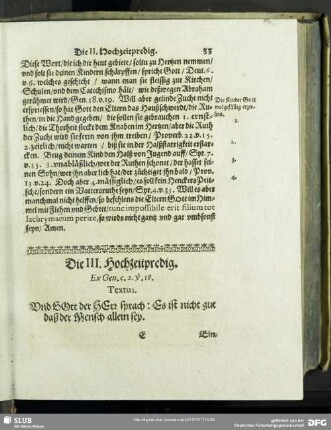 Die II. Hochzeitpredig. 33
Diese Wort/ die ich dir heut gebiete/ soltu zu Hertzen nemmen/
vnd solt sie deinen Kindern schärpffen/ spricht Gott/ Deut. 6.
v. 6. welches geschicht/ wann man sie fleissig zur Kirchen/
Schulen/ vnd dem Catechismo hält/ wie deßwegen Abraham
gerühmet wird/ Gen. 18. v. 19. Will aber gelinde Zucht nicht
ersprießen/ so hat Gott den Eltern das Haußschwerdt/ die Ru-
then/ in die Hand gegeben/ die sollen sie gebrauchen 1. ernst-
lich/ die Thorheit steckt dem Knaben im Hertzen/ aber die Ruth
der Zucht wird sie fern von ihm treiben/ Proverb. 22. v. 15.
2. zeitlich/ nicht warten/ biß sie in der Halßstarrigkeit erstar-
cken. Beug deinem Kind den Halß von Jugend auff/ Syr. 7.
v. 25. 3. vnabläßlich/ wer der Ruthen schonet/ der hasset sei-
nen Sohn/ wer ihn aber lieb hat/ der züchtiget ihn bald/ Prov.
13. v. 24. Doch aber 4. mässiglich/ es soll kein Henckers Peit-
sch/ sondern ein Vattersruthe seyn/ Syr. 4. v. 35. Will es aber
manchmal nicht helffen/ so bestehens die Eltern Gott im Him-
mel mit Flehen vnd Gebett/ tunc impossibile erit filium tot
lacrymarum perire, so wirds nicht gantz vnd gar vmbsonst
seyn/ Amen.
Die Kinder Gott
wolgefällig erzie-
hen.
1.
2.
3.
4.
Die III. Hochzeitpredig.
Ex Gen. c. 2. ỳ. 18.
Textus.
Vnd GOtt der HErr sprach: Es ist nicht gut
daß der Mensch allein sey.
E Ein-
SLUB
Wir führen Wissen.
gefördert von der
Deutschen Forschungsgemeinschaft
DFG